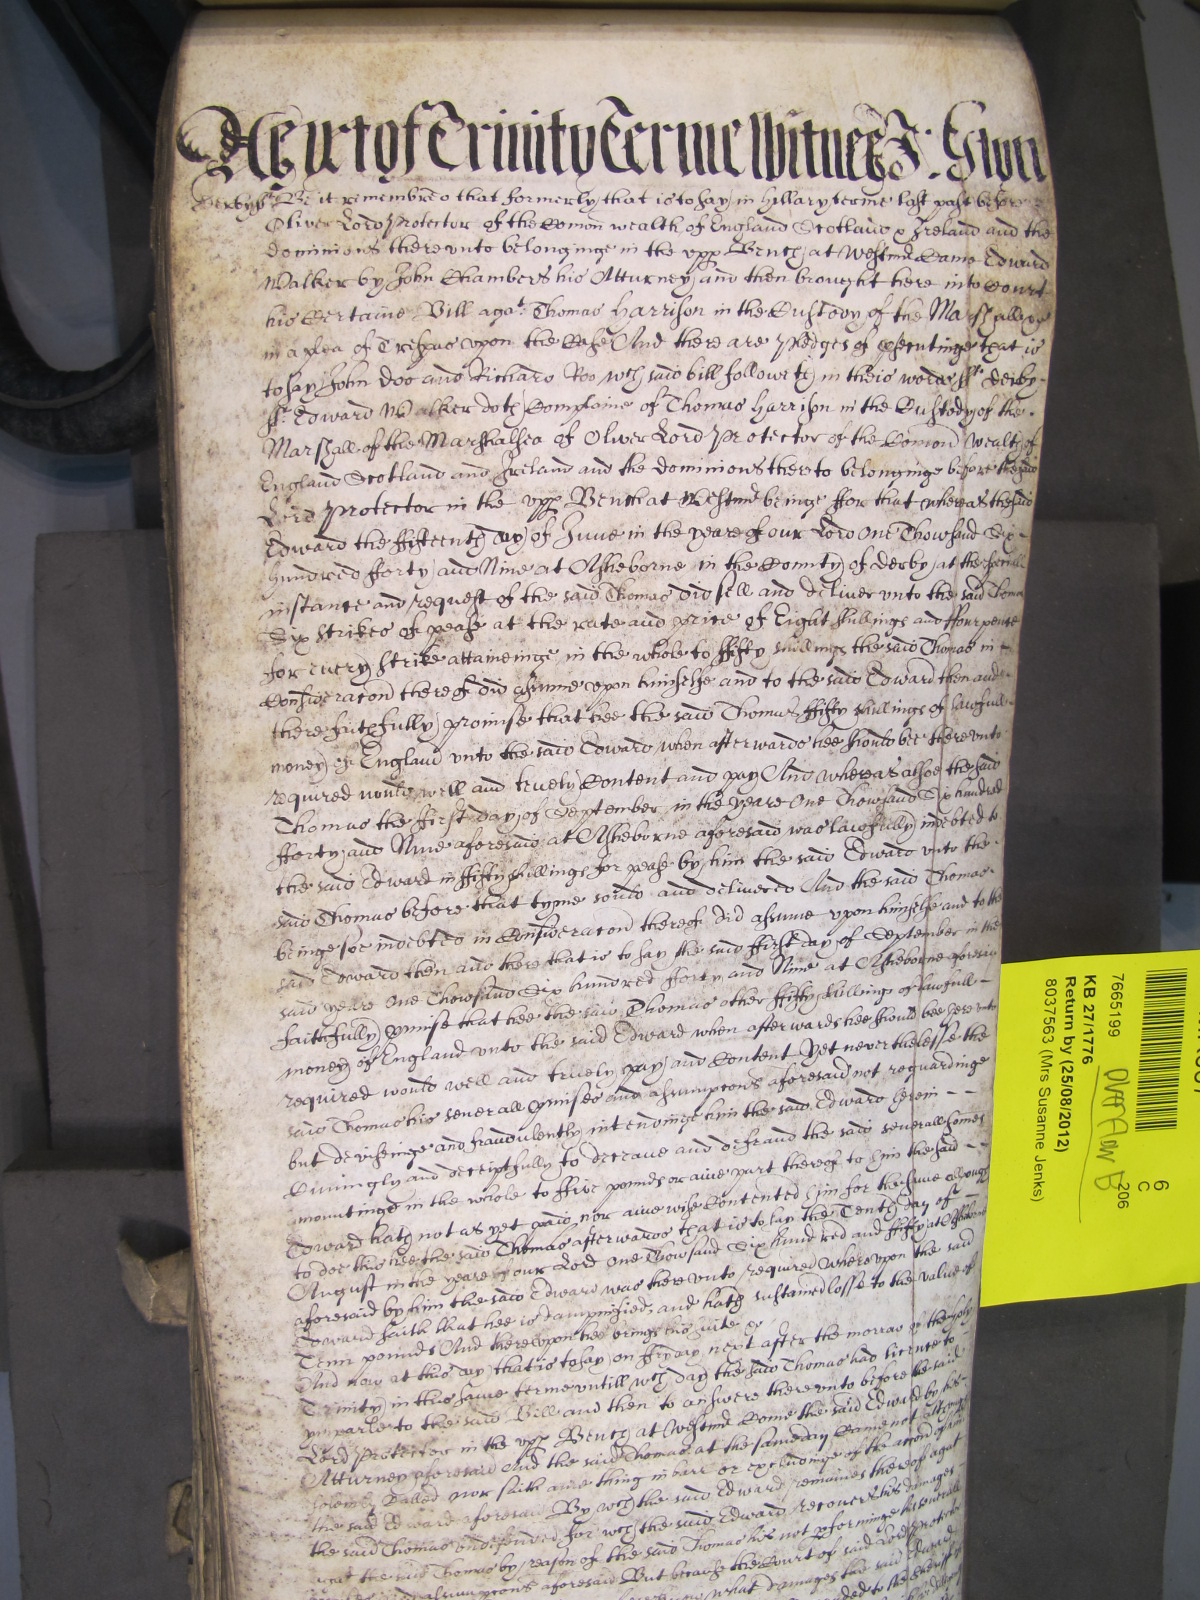 As yet of Trinity Terme Witnes J:
Derbysh ss Be it remembred that formerly that is to say in Hillary terme last past before
Oliver Lord Protector of the Comon wealth of England Scotland & Ireland and the
dominions therevnto belonginge in the vpp Bench at Westmr Came Edward
Walker by John Chambers his Atturney and then brought here into Court
his Certaine Bill agat Thomas Harrison in the Custody of the Marshall &c
in a plea of Trespas vpon the Case And there are pledges of prosecutinge that is
to say John Doo and Richard Roo wch said bill followeth in theis words ss Derby
ss Edward Walker doth Complaine of Thomas Harrison in the Custody of the
Marshall of the Marshalsea of Oliver Lord Protector of the Comon Wealth of
England Scotland and Ireland and the dominions thereto belonginge before the said
Lord Protector in the vpp Bench at Westmr beinge ffor that whereas the said
Edward the fifteenth day of June in the yeare of our Lord One Thowsand Six
hundred fforty and Nine at Asheborne in the County of Derby at the speciall
instance and request of the said Thomas did sell and deliver vnto the said Thomas
Six strikes of pease at the rate and price of Eight shillings and ffourpence
for every strike attaineinge in the whole to ffifty shillings the said Thomas in
Consideracon thereof did assume vpon himselfe and to the said Edward then and
there faithfully promise that hee the said Thomas ffifty shillings of lawfull
money of England vnto the said Edward when afterwards hee should bee therevnto
required would well and truely Content and pay And whereas alsoe the said
Thomas the first day of September in the yeare One Thowsand Six hundred
fforty and Nine aforesaid at Asheborne aforesaid was lawfully indebted to
the said Edward in ffifty shillings for pease by him the said Edward vnto the
said Thomas before that tyme sould and delivered And the said Thomas
beinge soe indebted in Consideracon thereof did assume vpon himselfe and to the
said Edward then and there that is to say the said first day of September in the
said yeare One Thowsand Six hundred fforty and Nine at Asheborne aforesaid
faithfully pmise that hee the said Thomas other ffifty shillings of lawfull
money of England vnto the said Edward when afterwards hee should bee herevnto
required would well and truely pay and Content Yet neverthelesse the
said Thomas his severall pmises and assumpcons aforesaid not reguardinge
but deviseinge and fraudulently intendinge him the said Edward herein
Cuningly and deceiptfully to deceave and defraud the said severall somes
mountinge in the whole to ffive pounds or anie part thereof to him the said
Edward hath not as yet paid nor anie wise Contented him for the same although
to doe this hee the said Thomas afterwards that is to say the Tenth day of
August in the yeare of our Lord One Thowsand Six hundred and ffifty at Asheborne
aforesaid by him the said Edward was therevnto required Wherevpon the said
Edward saith that hee is dampnified and hath sustained losse to the value of
Tenn pounds And therevpon hee brings his suite &c
And now at this day that is to say on ffryday next after the morrow of the holy
Trinity in this same terme vntill wch day the said Thomas had licence to
imparle to the said Bill and then to answere therevnto before the said
Lord Protector in the vpp Bench at Westmr Come the said Edward by his
Atturney aforesaid And the said Thomas at the same day Came not although
solemly Called nor saith anie thing in barr or excludinge of the accon of
the said Edward aforesaid By wch the said Edward remaines thereof agat
the said Thomas vndefended for wch the said Edward recover his damages
agat the said Thomas by reason of the said Thomas his not pforminge his severall
assumpcons aforesaid But because the Court of said Lord Protector
what damages the said Edward
7665199
KB 27/1776
Return by (25/08/2012)
8037563 (Mrs Susanne Jenks)
6
C
206